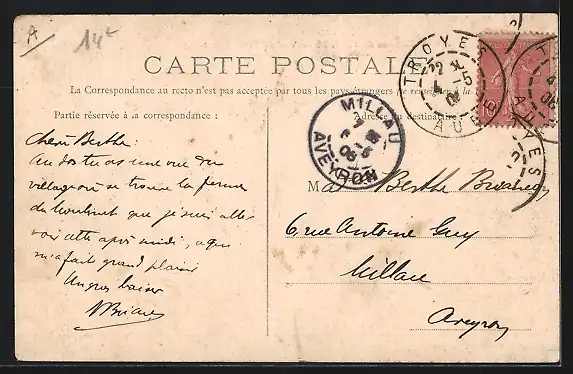 A
14€
CARTE POSTALE
La Correspondance au recto n'est pas acceptée par tous les pays étrangers (se renseigner à la
Partie réservée à la correspondance :
Adresse du destinataire
TROYES
AUBE
22
4-5
06
MILLAU
AVEYRON
06
Chère Berthe :
Au dos tu as une vue du
village où se trouve la ferme
de que je suis allée
voir cette après midi, ce qui
m'a fait grand plaisir
Un gros baiser
M Berthe
6, rue Antoine Guy
Millau
Aveyron